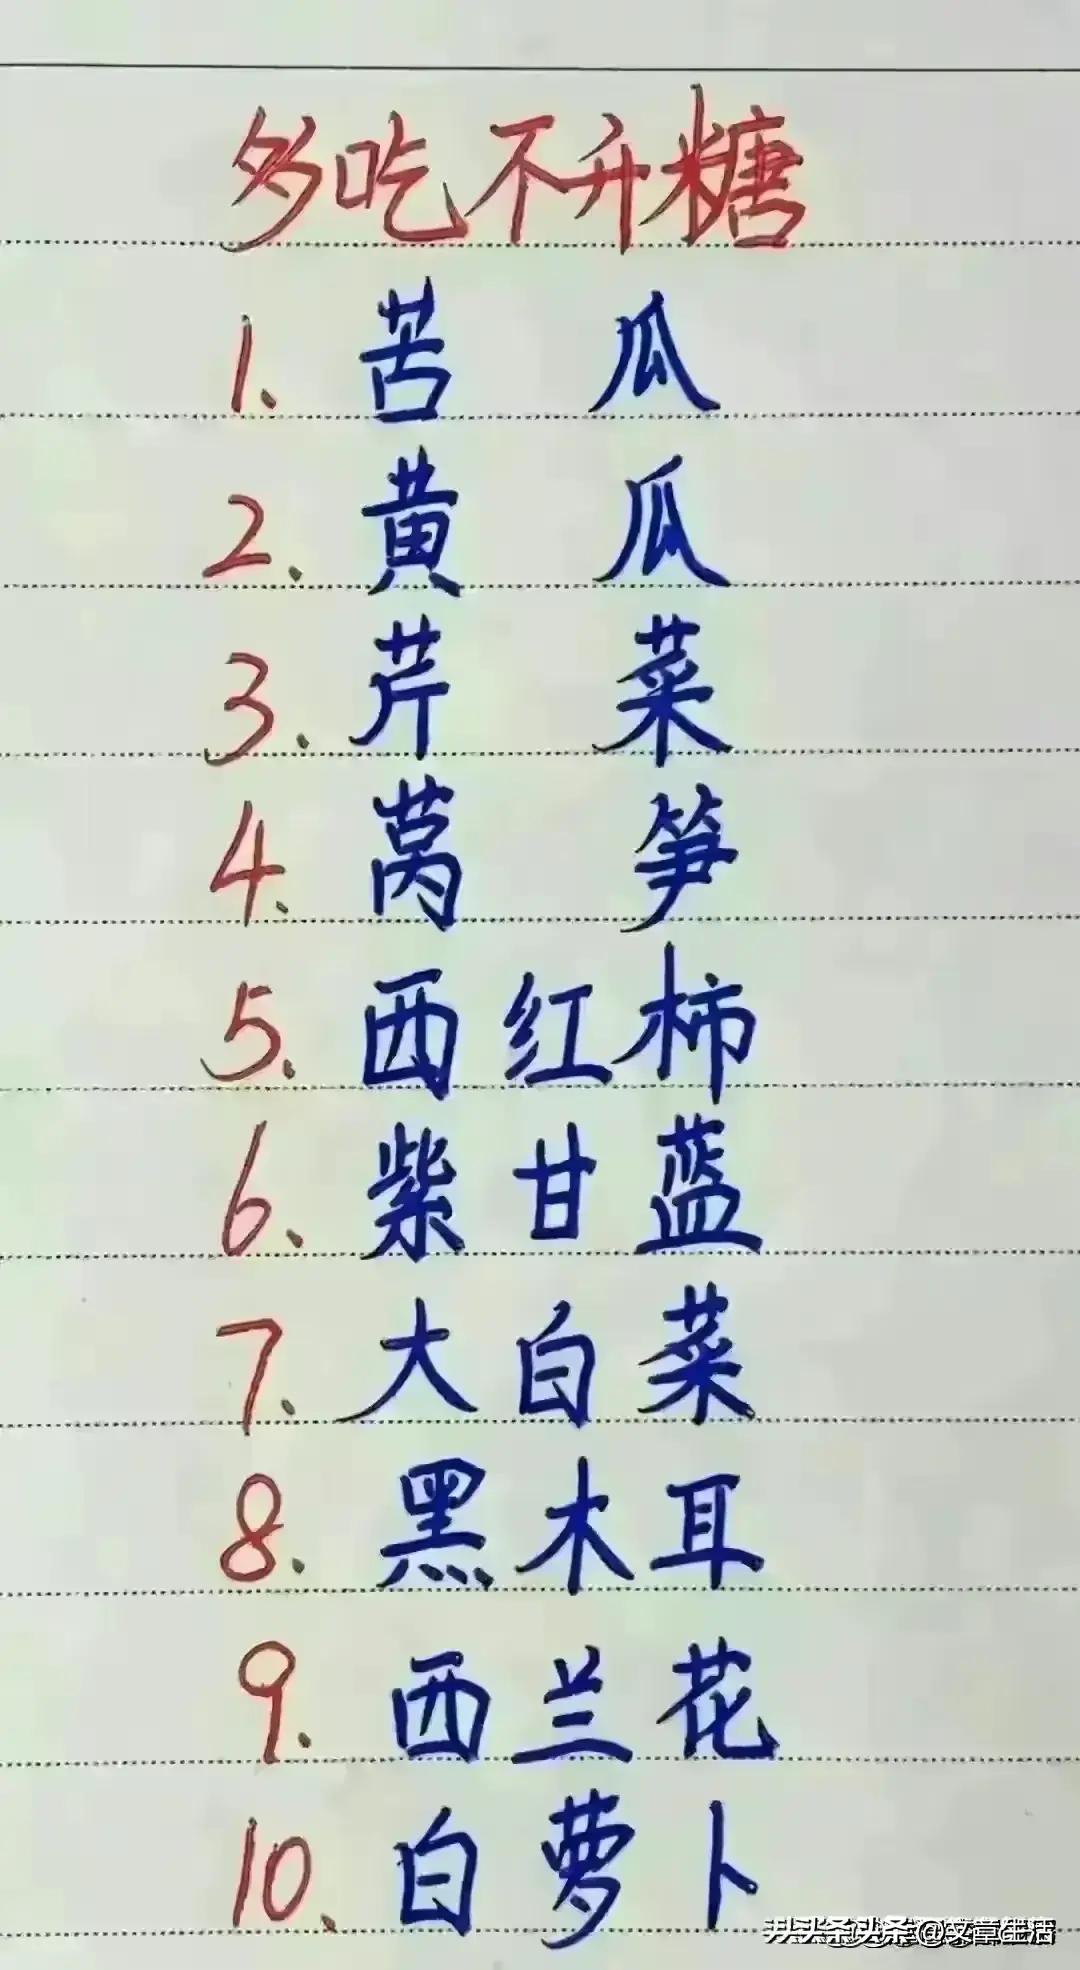 多吃不升糖
1、苦瓜
2、黄瓜
3、芹菜
4、莴笋
5、西红柿
6、紫甘蓝
7、大白菜
8、黑木耳
9、西兰花
10、白萝卜